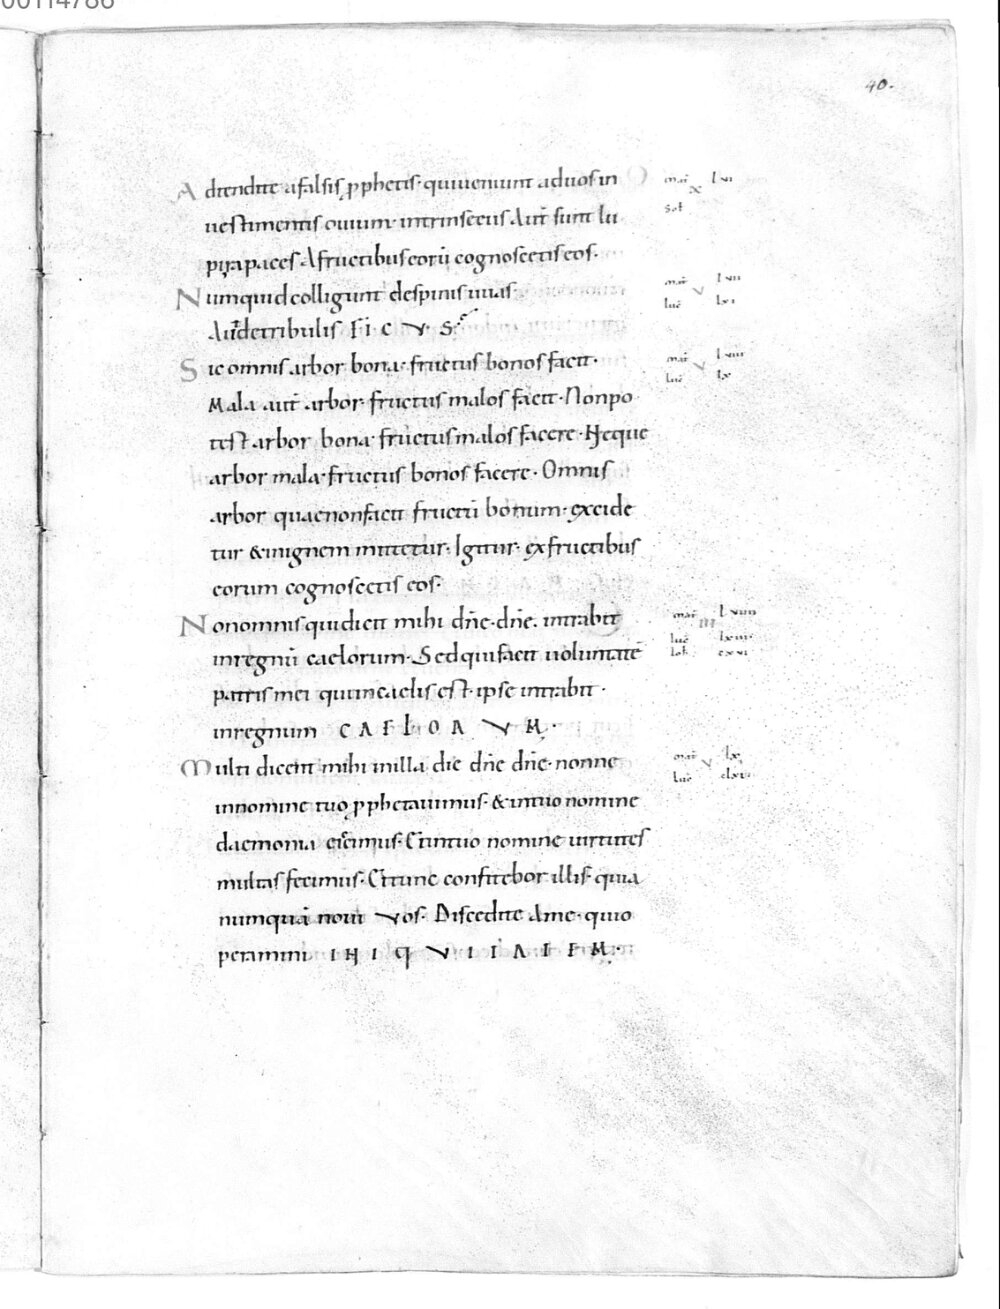 00114786
40.
Adtendite afalsis pphetis· quiueniunt aduosin
uestimentis ouium· intrinsecus Aut̄ sunt lu
pirapaces Afructibus eorū cognoscetis eos·
Numquid colligunt despinis uuas
Autdetribulis FICVS·
Sic omnis arbor bona· fructus bonos facit·
Mala aut̄ arbor· fructus malos facit· Nonpo
test arbor bona· fructus malos facere· Neque
arbor mala· fructus bonos facere· Omnis
arbor quaenonfacit fructū bonum· excide
tur &inignem mittetur· Igitur· exfructibus
eorum cognoscetis eos·
Nonomnis quidicit mihi dn̄e· dn̄e· intrabit
inregnū caelorum· Sedquifacit uoluntatē
patris mei quiincaelis est· ipse intrabit·
inregnum CAELORVM·
Multi dicent mihi inilla die dn̄e dn̄e· nonne
innomine tuo pphetauimus· &intuo nomine
daemonia eiecimus· Etintuo nomine uirtutes
multas fecimus· Ettunc confitebor illis· quia
numquā noui vos· Discedite Ame· quio
peramini INIQVITATEM·
mat̄ lvi
x
sol
mat̄ lvii
v
luc̄ lxi
mat̄ lviii
v
luc̄ lx
mat̄ lviiii
iii
luc̄ lxiii
ioh̄ cxvi
mat̄ lx
v
luc̄ clxxi